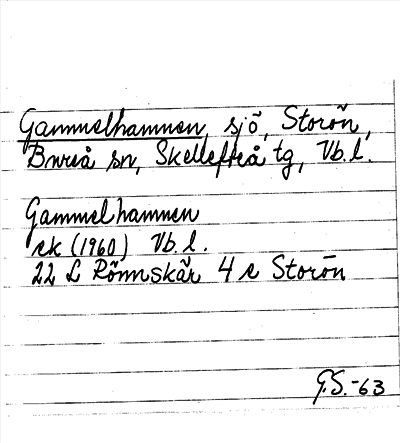 Gammelhamnen, sjö, Storön,
Bureå sn, Skellefteå tg, Vb.l.
Gammelhamnen
ek (1960) Vb.l.
22 L Rönnskär 4 e Storön
G.S.-63